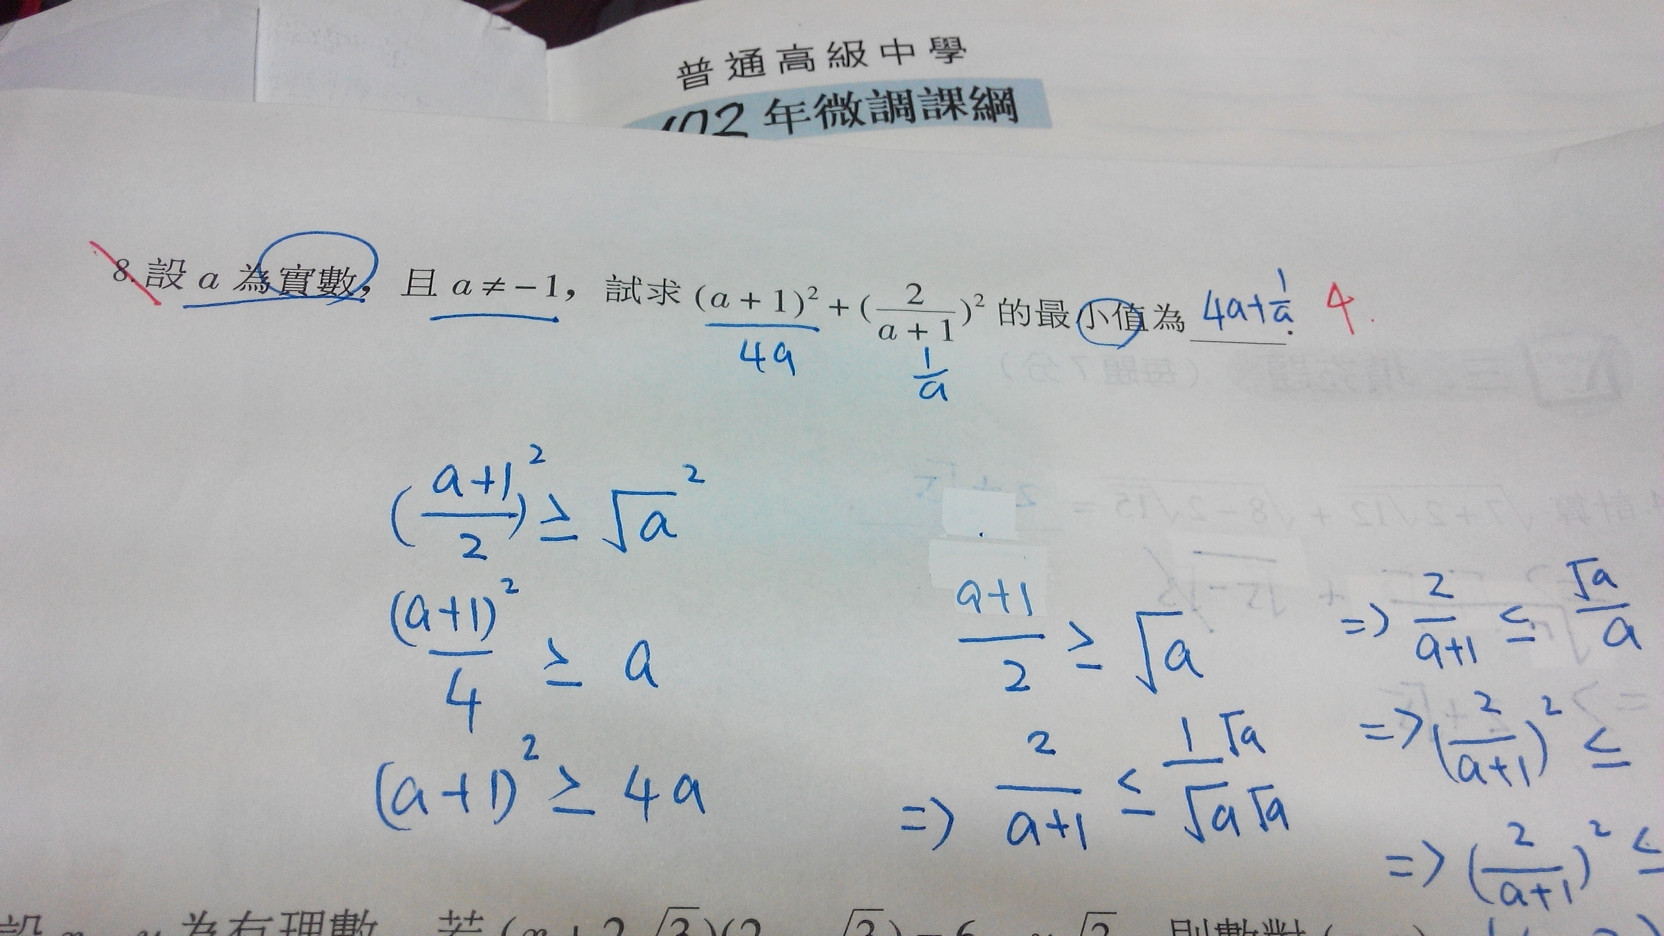 普通高級中學
102年微調課綱
8. 設 a 為實數，且 a ≠ −1，試求 (a + 1)² + (2/(a + 1))² 的最小值為 4a+1/a. 4.
4a
1/a
((a+1)/2)² ≥ √a²
(a+1)²/4 ≥ a
(a+1)² ≥ 4a
(a+1)/2 ≥ √a
=> 2/(a+1) ≤ 1√a/(√a√a)
=> 2/(a+1) ≤ √a/a
=> (2/(a+1))² ≤
=> (2/(a+1))² ≤
為有理數